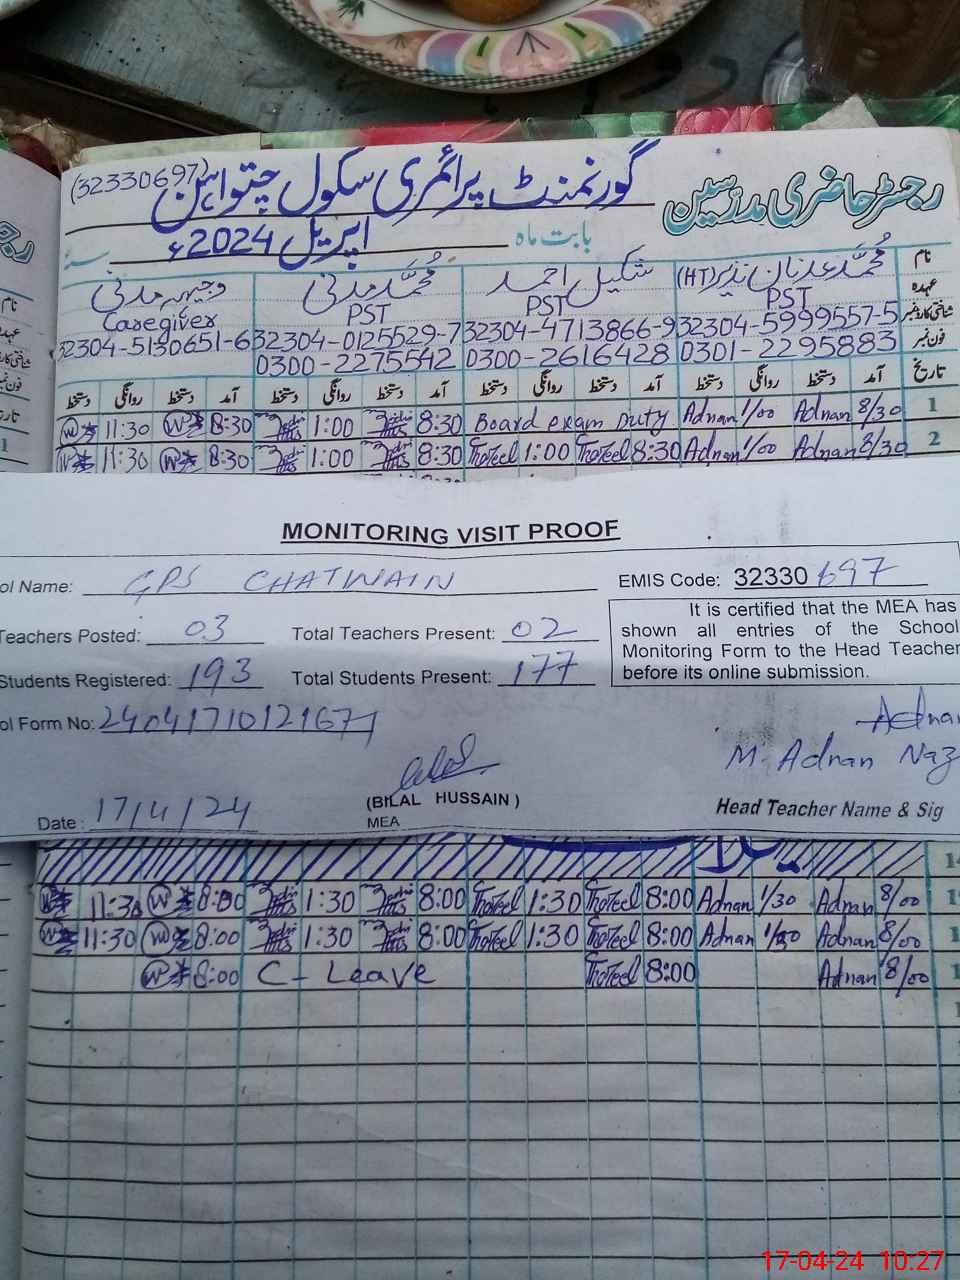 (32330697) گورنمنٹ پرائمری سکول چتواہن
رجسٹر حاضری مدرّسین
بابت ماہ اپریل 2024ء سنہ
نام محمّد عدنان نذیر (HT) شکیل احمد محمّد مدنی وجیہہ مدنی
عہدہ PST PST PST Caregiver
شناختی کارڈ نمبر 32304-5999557-5 32304-4713866-9 32304-0125529-7 32304-5130651-6
فون نمبر 0301-2295883 0300-2616428 0300-2275542
تاریخ آمد دستخط روانگی دستخط آمد دستخط روانگی دستخط آمد دستخط روانگی دستخط آمد دستخط روانگی دستخط
11:30 8:30 1:00 8:30 Board exam Duty Adnan 1/00 Adnan 8/30 1
11:30 8:30 1:00 8:30 1:00 8:30 Adnan 1/00 Adnan 8/30 2
MONITORING VISIT PROOF
ol Name: GPS CHATWAIN EMIS Code: 32330697
Teachers Posted: 03 Total Teachers Present: 02
Students Registered: 193 Total Students Present: 177
It is certified that the MEA has
shown all entries of the School
Monitoring Form to the Head Teacher
before its online submission.
ol Form No:
Adnan
M. Adnan Naz
Date: 17/4/24 (BILAL HUSSAIN) Head Teacher Name & Sig
MEA
11:30 8:00 1:30 8:00 1:30 8:00 Adnan 1/30 Adnan 8/00
11:30 8:00 1:30 8:00 1:30 8:00 Adnan 1/30 Adnan 8/00
8:00 C-Leave 8:00 Adnan 8/00
17-04-24 10:27